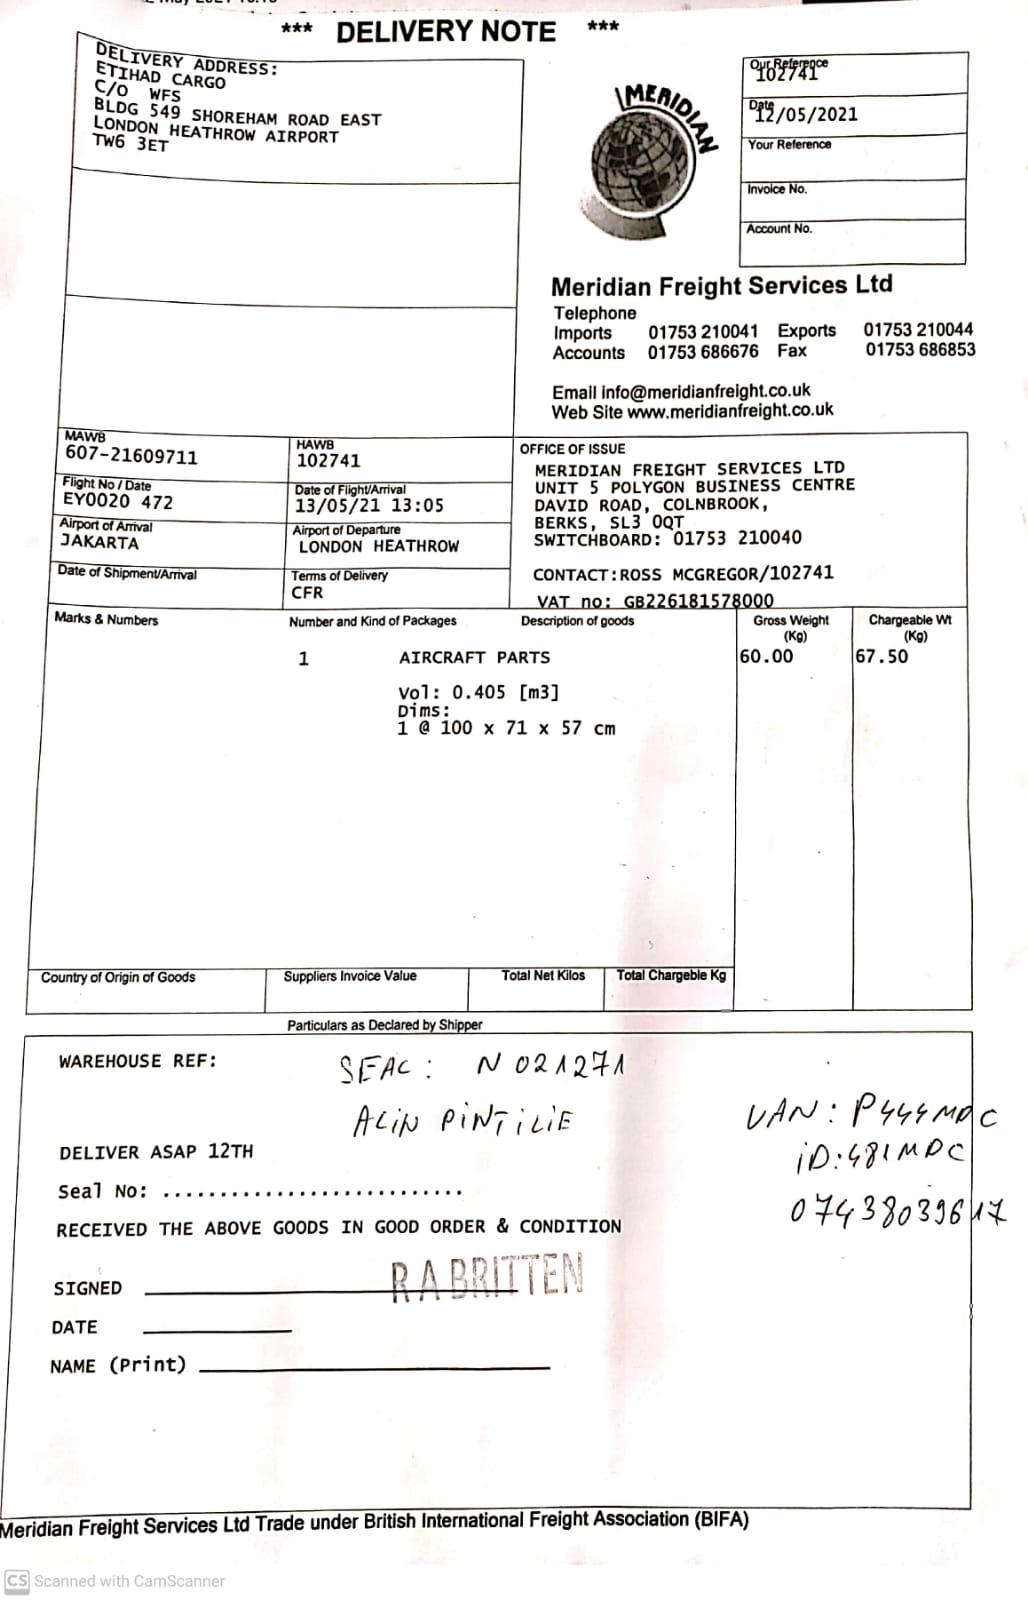 *** DELIVERY NOTE ***
DELIVERY ADDRESS:
ETIHAD CARGO
C/O WFS
BLDG 549 SHOREHAM ROAD EAST
LONDON HEATHROW AIRPORT
TW6 3ET
MERIDIAN
Our Reference
102741
Date
12/05/2021
Your Reference
Invoice No.
Account No.
Meridian Freight Services Ltd
Telephone
Imports 01753 210041 Exports 01753 210044
Accounts 01753 686676 Fax 01753 686853
Email info@meridianfreight.co.uk
Web Site www.meridianfreight.co.uk
MAWB
607-21609711
HAWB
102741
Flight No / Date
EY0020 472
Date of Flight/Arrival
13/05/21 13:05
Airport of Arrival
JAKARTA
Airport of Departure
LONDON HEATHROW
Date of Shipment/Arrival
Terms of Delivery
CFR
OFFICE OF ISSUE
MERIDIAN FREIGHT SERVICES LTD
UNIT 5 POLYGON BUSINESS CENTRE
DAVID ROAD, COLNBROOK,
BERKS, SL3 0QT
SWITCHBOARD: 01753 210040
CONTACT:ROSS MCGREGOR/102741
VAT no: GB226181578000
Marks & Numbers Number and Kind of Packages Description of goods Gross Weight (Kg) Chargeable Wt (Kg)
1 AIRCRAFT PARTS 60.00 67.50
Vol: 0.405 [m3]
Dims:
1 @ 100 x 71 x 57 cm
Country of Origin of Goods Suppliers Invoice Value Total Net Kilos Total Chargeble Kg
Particulars as Declared by Shipper
WAREHOUSE REF:
SEAL: N 021271
ALIN PINTILIE
VAN: P444MDC
iD:481MDC
07438039617
DELIVER ASAP 12TH
Seal No: ...........................
RECEIVED THE ABOVE GOODS IN GOOD ORDER & CONDITION
SIGNED R A BRITTEN
DATE
NAME (Print)
Meridian Freight Services Ltd Trade under British International Freight Association (BIFA)
CS Scanned with CamScanner